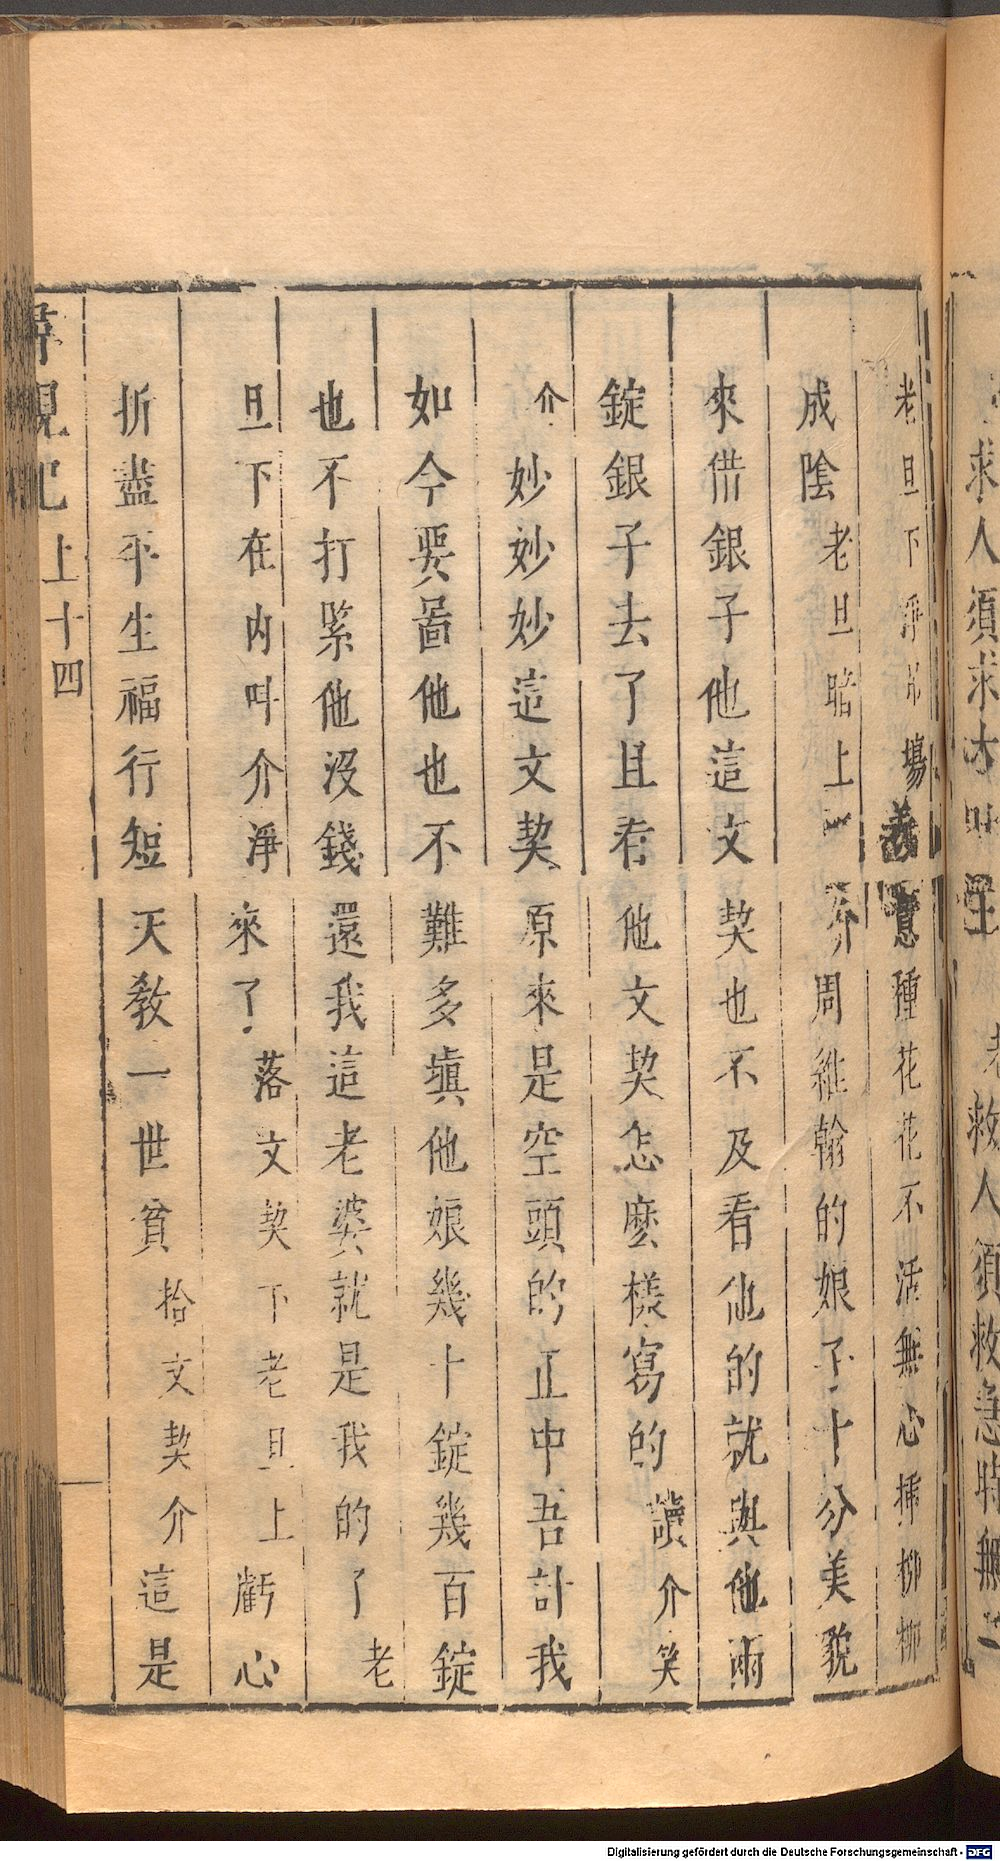 求人須求大 救人須救急時無
老旦下淨吊場義意種花花不活無心挿柳柳
成陰老旦暗上介周維翰的娘子十分美貌
來借銀子他這文契也不及看他的就與他兩
錠銀子去了且看他文契怎麽樣寫的讀介笑
介妙妙妙這文契原來是空頭的正中吾計我
如今要啚他也不難多塡他娘幾十錠幾百錠
也不打緊他沒錢還我這老婆就是我的了老
旦下在内叫介淨來了落文契下老旦上虧心
折盡平生福行短天教一世貧拾文契介這是
尋親記上十四
Digitalisierung gefördert durch die Deutsche Forschungsgemeinschaft - DFG